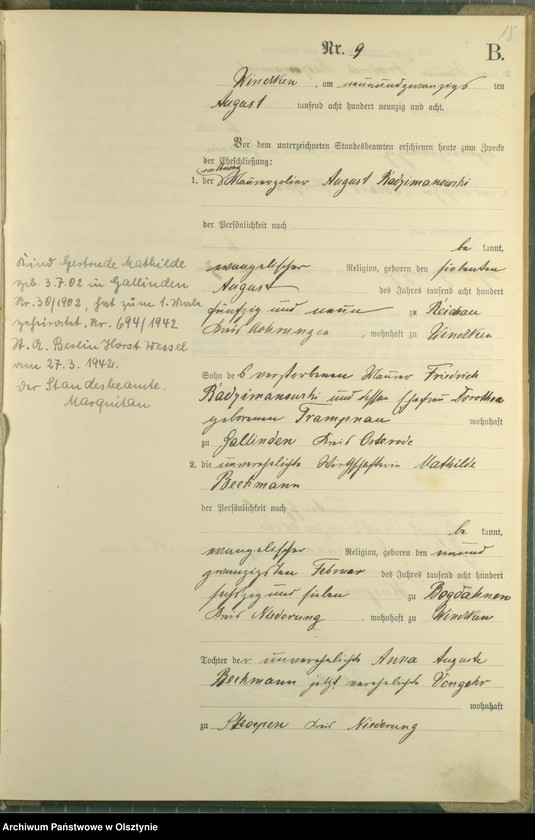 15
Nr. 9
B.
Windtken, am neunundzwanzigs ten
August tausend acht hundert neunzig und acht.
Vor dem unterzeichneten Standesbeamten erschienen heute zum Zwecke
der Eheschließung:
1. der Maurerpolier August Radzimanowski
der Persönlichkeit nach
be kannt,
evangelischer Religion, geboren den siebenten
August des Jahres tausend acht hundert
fünfzig und neun zu Reichau
Kreis Mohrungen, wohnhaft zu Windtken
Sohn des verstorbenen Maurer Friedrich
Radzimanowski und dessen Ehefrau Dorothea
geborenen Trampnau wohnhaft
zu Gallinden Kreis Osterode
2. die unverehelichte Wirthschafterin Mathilde
Beckmann
der Persönlichkeit nach
be kannt,
evangelischer Religion, geboren den neunund
zwanzigsten Februar des Jahres tausend acht hundert
sechszig und sieben zu Bogdahnen
Kreis Niederung, wohnhaft zu Windtken
Tochter der unverehelichte Anna Auguste
Beckmann jetzt verehelichte Vongehr
wohnhaft
zu Skoepen Kreis Niederung
Kind Gertrude Mathilde
geb. 3.7.02 in Gallinden
Nr. 30/1902, hat zum 1. Male
geheiratet, Nr. 694/1942
St. A. Berlin Horst Wessel
am 27.3.1942.
Der Standesbeamte.
Marquitan
Archiwum Państwowe w Olsztynie